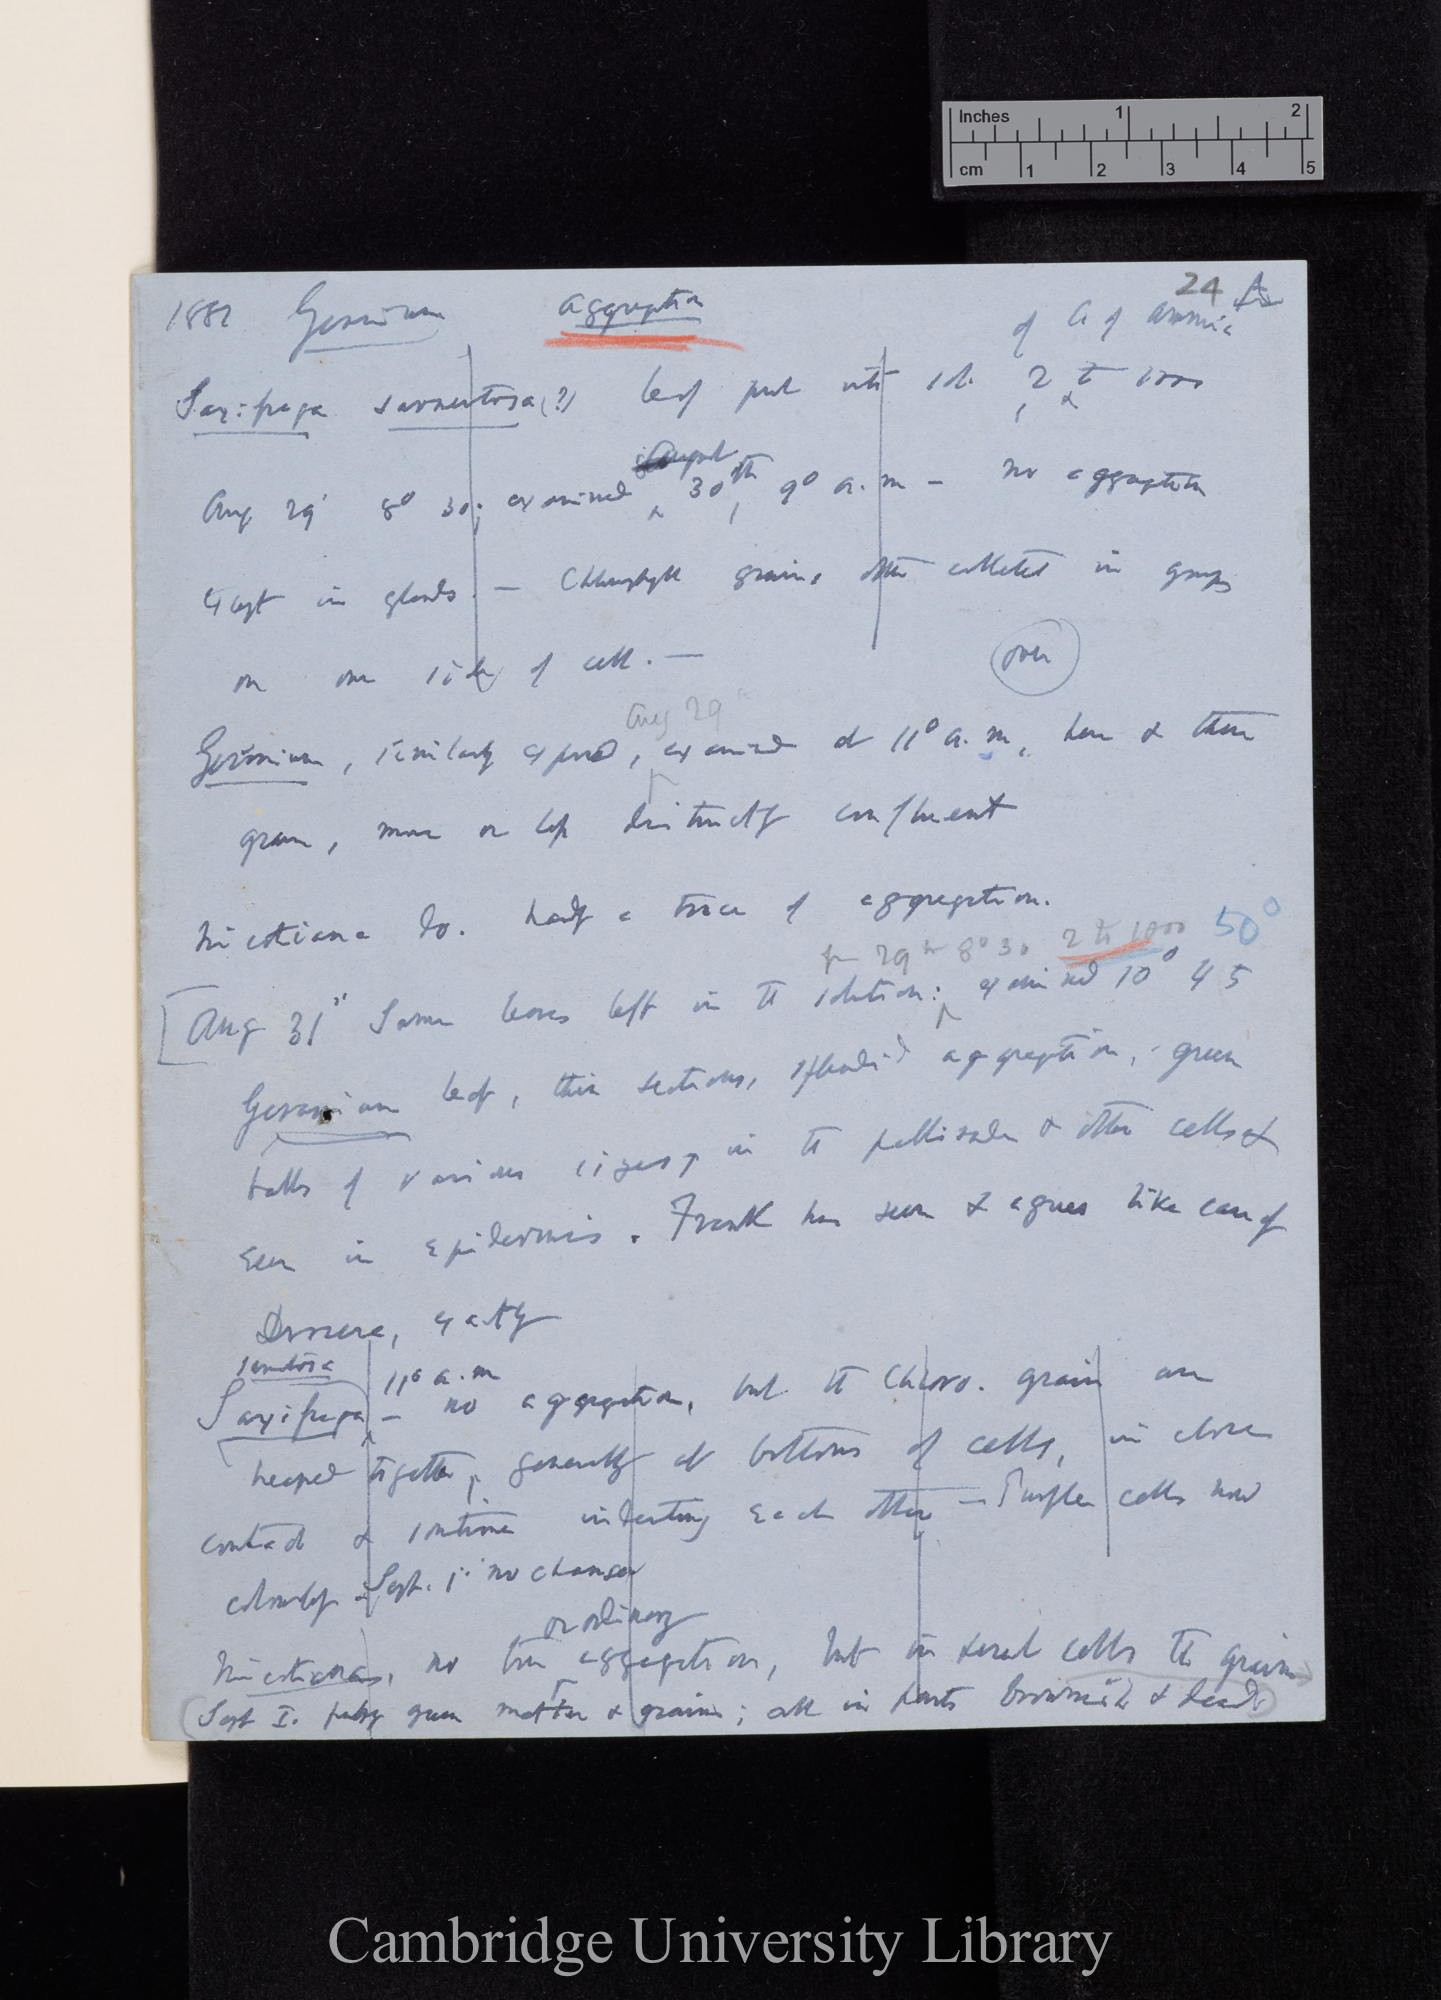 Inches 1 2
cm 1 2 3 4 5
24
1881 Geranium Aggregation
of C. of ammonia
Saxifraga sarmentosa (?) leaf put into sol. 2 to 1000
Aug 29' 8° 30; examined August 30th, 9° a.m — no aggregation
except in glands. — Chlorophyll grains often collected in groups
on one side of cell. —
over
Aug 29th
Geranium, similarly exposed, examined at 11° a.m, here & there
grains, more or less distinctly confluent
Nicotiana do. hardly a trace of aggregation.
from 29th 8° 30 2 to 1000 50°
[Aug 31st Same leaves left in the solution: examined 10° 45
Geranium leaf, thin sections, splendid aggregation, green
balls of various sizes, in the pallisade & other cells &
seen in epidermis. Frank has seen & agrees like case of
Drosera, exactly
sarmentosa
11° a.m
Saxifraga — no aggregation, but the Chloro. grains are
heaped together, generally at bottoms of cells, in close
contact & sometimes indenting each other — Purple cells now
colourless — Sept. 1st no change
ordinary
Nicotiana, no true aggregation, but in several cells the grains
(Sept 1. pulpy green matter & grains; all in parts brownish & dead)
Cambridge University Library